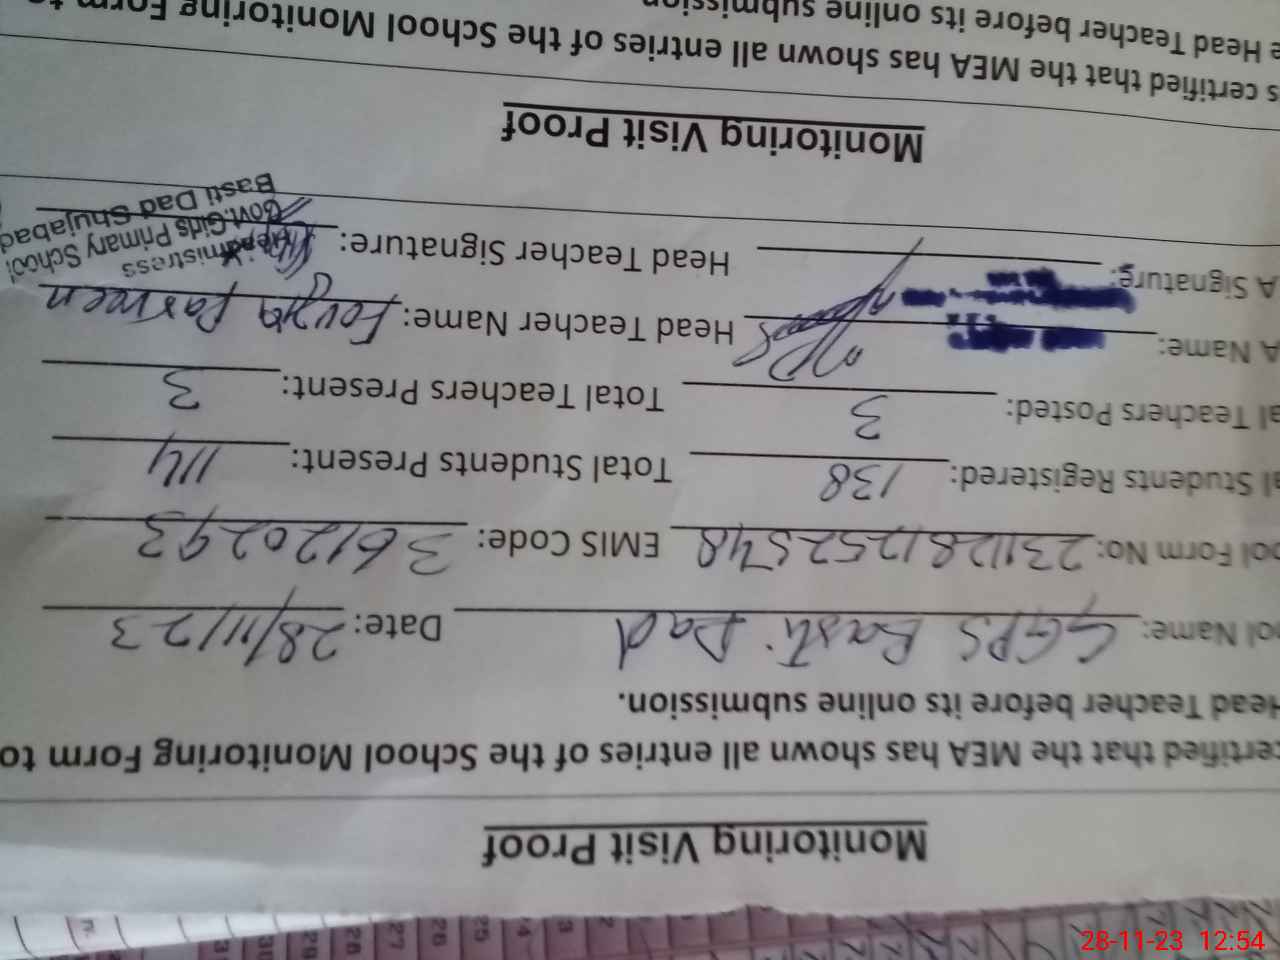 Monitoring Visit Proof
certified that the MEA has shown all entries of the School Monitoring Form to
Head Teacher before its online submission.
ool Name: GGPS Basti Dad Date: 28/11/23
ool Form No: 2311281252548 EMIS Code: 36120293
al Students Registered: 138 Total Students Present: 114
al Teachers Posted: 3 Total Teachers Present: 3
A Name: Head Teacher Name: Fouzia Parveen
A Signature: Head Teacher Signature:
Headmistress
Govt. Girls Primary School
Basti Dad Shujabad
Monitoring Visit Proof
s certified that the MEA has shown all entries of the School Monitoring Form to
e Head Teacher before its online submission
28-11-23 12:54